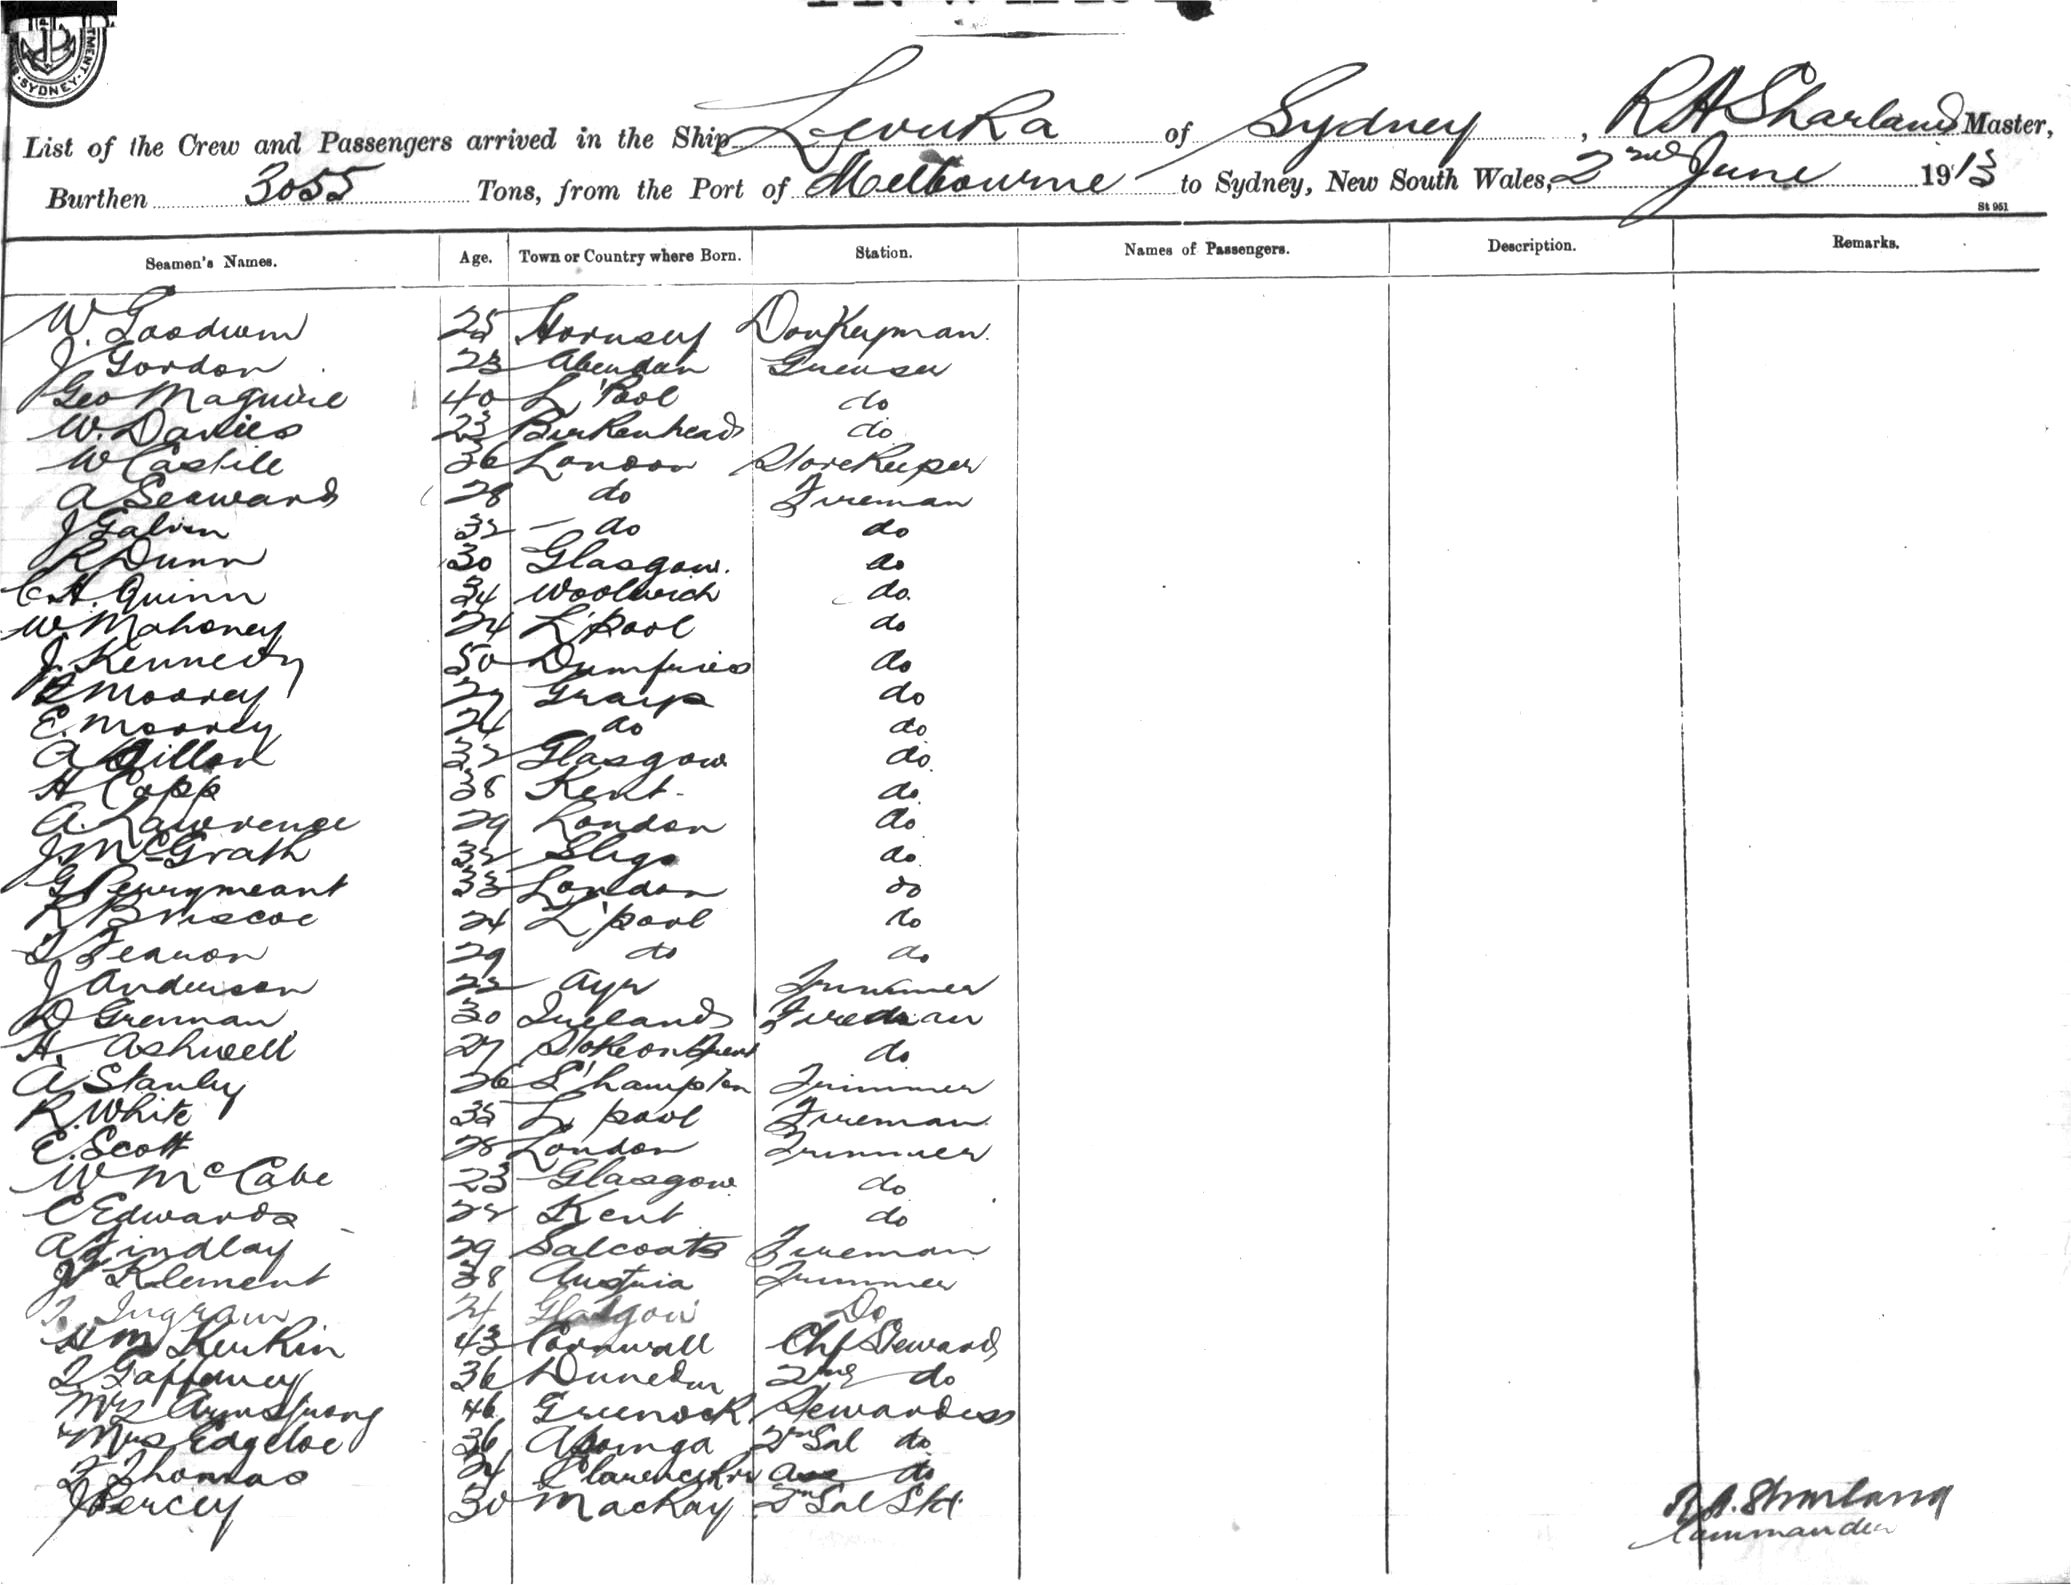 SYDNEY
List of the Crew and Passengers arrived in the Ship Levuka of Sydney, R A Sharland Master,
Burthen 3055 Tons, from the Port of Melbourne to Sydney, New South Wales, 2nd June 1913
St 951
Seamen's Names. Age. Town or Country where Born. Station. Names of Passengers. Description. Remarks.
W. Goodwin 25 Hornsey Donkeyman.
J Gordon 23 Aberdeen Greaser
Geo Maguire 40 L'Pool do
W. Davies 23 Birkenhead do
W Castile 36 London Storekeeper
A Seaward 28 do Fireman
J Galvin 32 do do
R Dunn 30 Glasgow. do
C. H. Quinn 34 Woolwich do.
W. Mahoney 24 L'pool do
J. Kennedy 50 Dumfries do
Moorey 27 Grays do
E. Moorey 24 do do
A Dillon 32 Glasgow do.
H Copp 38 Kent do
A. Lawrence 29 London do
J. McGrath 32 Sligo do.
G Perrymeant 33 London do
R Briscoe 24 L'pool do
Fearon 29 do do
J Anderson 22 Ayr Trimmer
D Grennan 30 Ireland Fireman
H. Ashwell 27 Stoke on Trent do
A Stanley 26 S'hampton Trimmer
R. White 35 L pool Fireman
E. Scott 28 London Trimmer
W McCabe 23 Glasgow. do
C Edwards 22 Kent do
A Findlay 29 Salcoats Fireman
J Klement 38 Austria Trimmer
Ingram 24 Glasgow Do
43 Cornwall Chf Steward
Gaffaney 36 Dunedin 2nd do
Mrs Armstrong 46 Greenock Stewardess
Mrs Edgeloe 36 2nd Sal do
F Thomas 24 Clarence Riv do
J Percey 30 MacKay 2nd Sal Std
R. A. Sharland
Commander